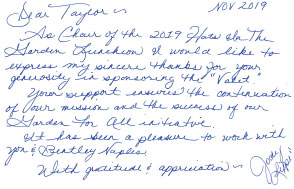 Dear Taylor ~
NOV 2019
As Chair of the 2019 Hats In The
Garden Luncheon I would like to
express my sincere thanks for your
generosity in sponsoring the "Valet".
Your support ensures the continuation
of our mission and the success of our
Garden For All initiative.
It has been a pleasure to work with
you & Bentley Naples.
With gratitude & appreciation ~